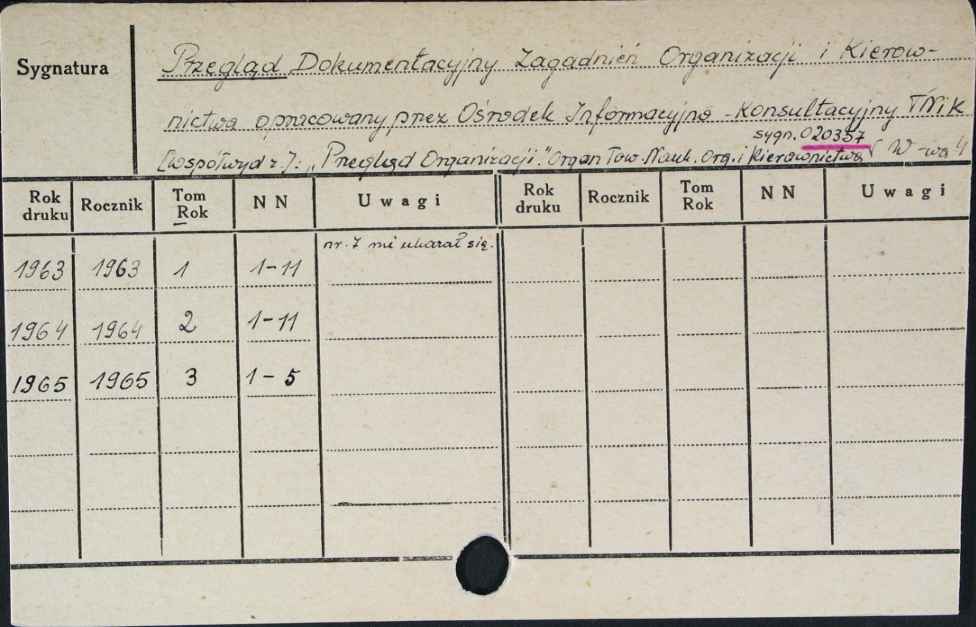 Sygnatura
Przegląd Dokumentacyjny Zagadnień Organizacji i Kierow-
nictwa opracowany przez Ośrodek Informacyjno-Konsultacyjny TNiK
sygn. 020357
[współwyd z]: „Przegląd Organizacji." Organ Tow. Nauk. Org. i Kierownictwa W-wa
Rok druku Rocznik Tom Rok NN Uwagi Rok druku Rocznik Tom Rok NN Uwagi
nr. 7 nie ukazał się.
1963 1963 1 1-11
1964 1964 2 1-11
1965 1965 3 1-5